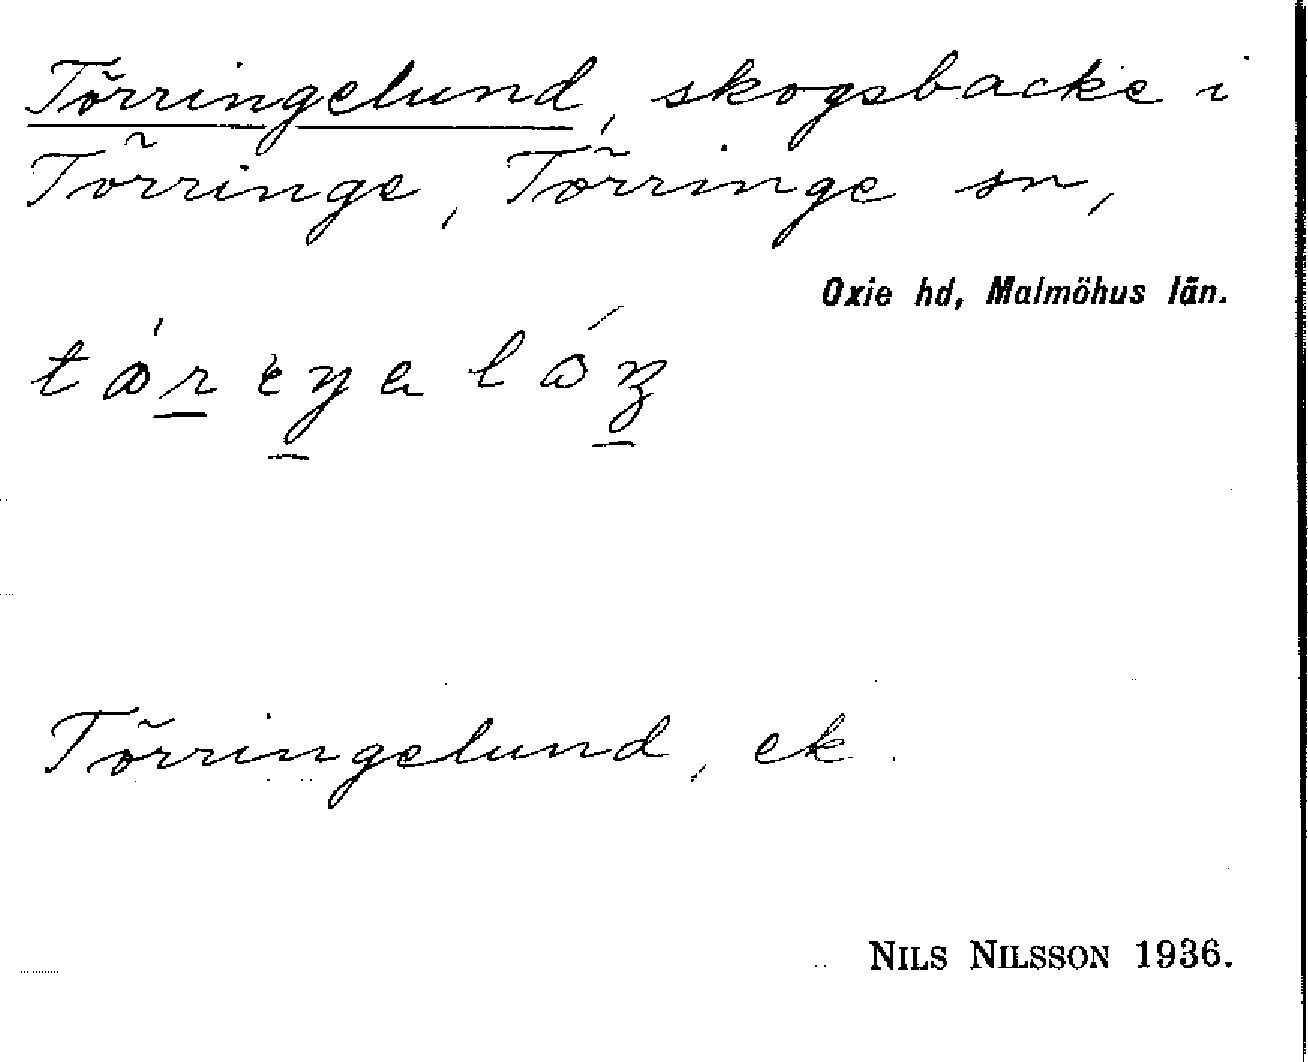 Törringelund, skogsbacke i
Törringe, Törringe sn,
Oxie hd, Malmöhus län.
Törringelund, ek.
NILS NILSSON 1936.